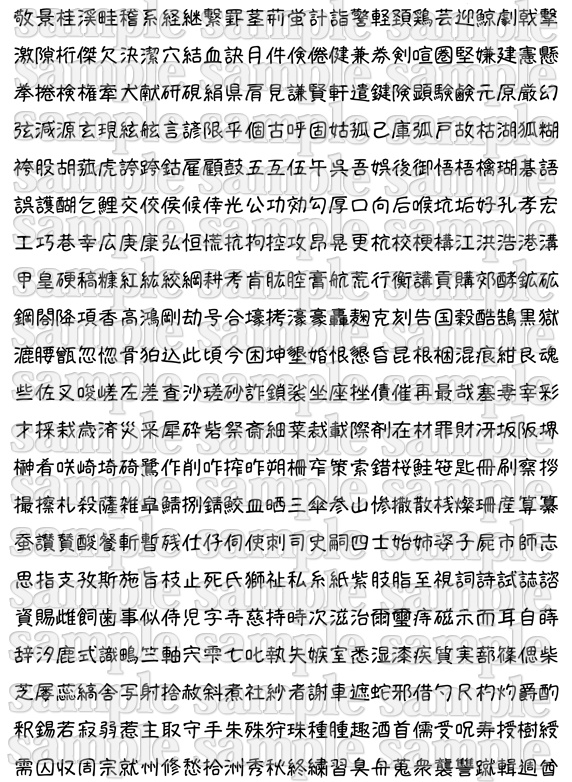 敬景桂渓畦稽系経継繋罫茎荊蛍計詣警軽頚鶏芸迎鯨劇戟撃
激隙桁傑欠決潔穴結血訣月件倹倦健兼券剣喧圏堅嫌建憲懸
拳捲検権牽犬献研硯絹県肩見謙賢軒遣鍵険顕験鹸元原厳幻
弦減源玄現絃舷言諺限乎個古呼固姑孤己庫弧戸故枯湖狐糊
袴股胡菰虎誇跨鈷雇顧鼓五互伍午呉吾娯後御悟梧檎瑚碁語
誤護醐乞鯉交佼侯候倖光公功効勾厚口向后喉坑垢好孔孝宏
工巧巷幸広庚康弘恒慌抗拘控攻昂晃更杭校梗構江洪浩港溝
甲皇硬稿糠紅紘絞綱耕考肯肱腔膏航荒行衡講貢購郊酵鉱砿
鋼閤降項香高鴻剛劫号合壕拷濠豪轟麹克刻告国穀酷鵠黒獄
漉腰甑忽惚骨狛込此頃今困坤墾婚恨懇昏昆根梱混痕紺艮魂
些佐叉唆嵯左差査沙瑳砂詐鎖裟坐座挫債催再最哉塞妻宰彩
才採栽歳済災采犀砕砦祭斎細菜裁載際剤在材罪財冴坂阪堺
榊肴咲崎埼碕鷺作削咋搾昨朔柵窄策索錯桜鮭笹匙冊刷察拶
撮擦札殺薩雑皐鯖捌錆鮫皿晒三傘参山惨撒散桟燦珊産算纂
蚕讃賛酸餐斬暫残仕仔伺使刺司史嗣四士始姉姿子屍市師志
思指支孜斯施旨枝止死氏獅祉私糸紙紫肢脂至視詞詩試誌諮
資賜雌飼歯事似侍児字寺慈持時次滋治爾璽痔磁示而耳自蒔
辞汐鹿式識鴫竺軸宍雫七叱執失嫉室悉湿漆疾質実蔀篠偲柴
芝屡蕊縞舎写射捨赦斜煮社紗者謝車遮蛇邪借勺尺杓灼爵酌
釈錫若寂弱惹主取守手朱殊狩珠種腫趣酒首儒受呪寿授樹綬
需囚収周宗就州修愁拾洲秀秋終繍習臭舟蒐衆襲讐蹴輯週酋